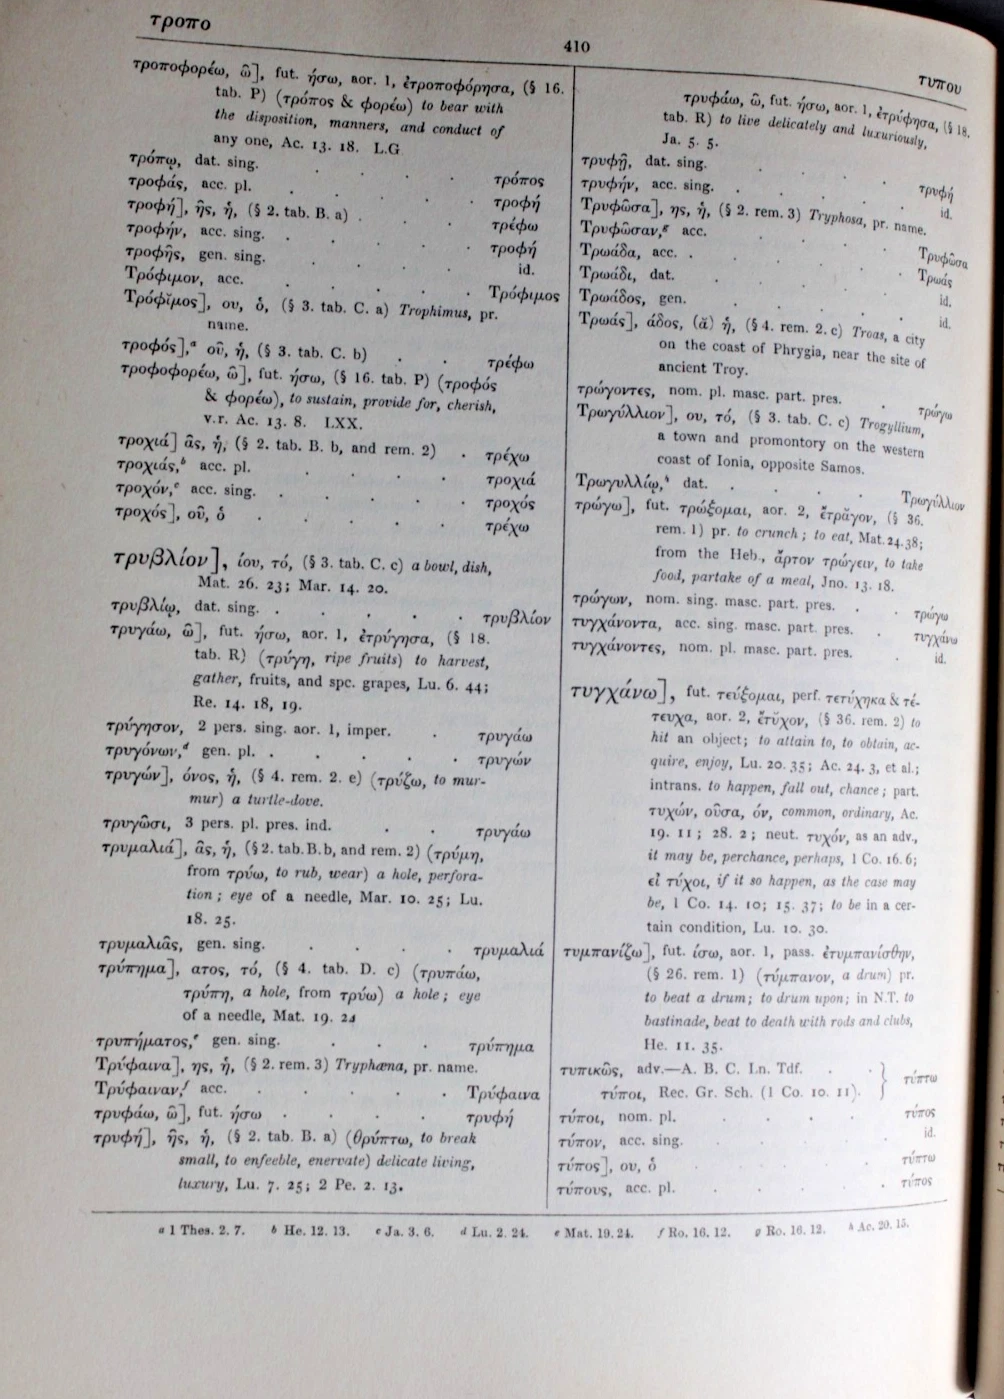 τροπο
410
τυπου
τροποφορέω, ῶ], fut. ήσω, aor. 1, ἐτροποφόρησα, (§ 16.
tab. P) (τρόπος & φορέω) to bear with
the disposition, manners, and conduct of
any one, Ac. 13. 18. L.G
τρόπῳ, dat. sing. . . . τρόπος
τροφάς, acc. pl. . . . . τροφή
τροφή], ῆς, ἡ, (§ 2. tab. B. a) . . . τρέφω
τροφήν, acc. sing. . . . . τροφή
τροφῆς, gen. sing. . . . id.
Τρόφιμον, acc. . . . . Τρόφιμος
Τρόφῐμος], ου, ὁ, (§ 3. tab. C. a) Trophimus, pr.
name.
τροφός],ᵃ οῦ, ἡ, (§ 3. tab. C. b) . . τρέφω
τροφοφορέω, ῶ], fut. ήσω, (§ 16. tab. P) (τροφός
& φορέω), to sustain, provide for, cherish,
v.r. Ac. 13. 8. LXX.
τροχιά] ᾶς, ἡ, (§ 2. tab. B. b, and rem. 2) . τρέχω
τροχιάς,ᵇ acc. pl. . . . . τροχιά
τροχόν,ᶜ acc. sing. . . . . τροχός
τροχός], οῦ, ὁ . . . . τρέχω
τρυβλίον], ίου, τό, (§ 3. tab. C. c) a bowl, dish,
Mat. 26. 23; Mar. 14. 20.
τρυβλίῳ, dat. sing. . . . . τρυβλίον
τρυγάω, ῶ], fut. ήσω, aor. 1, ἐτρύγησα, (§ 18.
tab. R) (τρύγη, ripe fruits) to harvest,
gather, fruits, and spc. grapes, Lu. 6. 44;
Re. 14. 18, 19.
τρύγησον, 2 pers. sing. aor. 1, imper. . τρυγάω
τρυγόνων,ᵈ gen. pl. . . . . . τρυγών
τρυγών], όνος, ἡ, (§ 4. rem. 2. e) (τρύζω, to mur-
mur) a turtle-dove.
τρυγῶσι, 3 pers. pl. pres. ind. . . τρυγάω
τρυμαλιά], ᾶς, ἡ, (§ 2. tab. B. b, and rem. 2) (τρύμη,
from τρύω, to rub, wear) a hole, perfora-
tion; eye of a needle, Mar. 10. 25; Lu.
18. 25.
τρυμαλιᾶς, gen. sing. . . . . τρυμαλιά
τρύπημα], ατος, τό, (§ 4. tab. D. c) (τρυπάω,
τρύπη, a hole, from τρύω) a hole; eye
of a needle, Mat. 19. 24
τρυπήματος,ᵉ gen. sing. . . . τρύπημα
Τρύφαινα], ης, ἡ, (§ 2. rem. 3) Tryphæna, pr. name.
Τρύφαιναν,ᶠ acc. . . . . . Τρύφαινα
τρυφάω, ῶ], fut. ήσω . . . . τρυφή
τρυφή], ῆς, ἡ, (§ 2. tab. B. a) (θρύπτω, to break
small, to enfeeble, enervate) delicate living,
luxury, Lu. 7. 25; 2 Pe. 2. 13.
τρυφάω, ῶ, fut. ήσω, aor. 1, ἐτρύφησα, (§ 18.
tab. R) to live delicately and luxuriously,
Ja. 5. 5.
τρυφῇ, dat. sing. . . . . τρυφή
τρυφήν, acc. sing. . . . . id.
Τρυφῶσα], ης, ἡ, (§ 2. rem. 3) Tryphosa, pr. name.
Τρυφῶσαν,ᵍ acc. . . . . Τρυφῶσα
Τρωάδα, acc. . . . . . Τρωάς
Τρωάδι, dat. . . . . id.
Τρωάδος, gen. . . . . id.
Τρωάς], άδος, (ᾰ) ἡ, (§ 4. rem. 2. c) Troas, a city
on the coast of Phrygia, near the site of
ancient Troy.
τρώγοντες, nom. pl. masc. part. pres. . τρώγω
Τρωγύλλιον], ου, τό, (§ 3. tab. C. c) Trogyllium,
a town and promontory on the western
coast of Ionia, opposite Samos.
Τρωγυλλίῳ,ʰ dat. . . . . Τρωγύλλιον
τρώγω], fut. τρώξομαι, aor. 2, ἔτρᾰγον, (§ 36.
rem. 1) pr. to crunch; to eat, Mat. 24. 38;
from the Heb., ἄρτον τρώγειν, to take
food, partake of a meal, Jno. 13. 18.
τρώγων, nom. sing. masc. part. pres. . . τρώγω
τυγχάνοντα, acc. sing. masc. part. pres. . τυγχάνω
τυγχάνοντες, nom. pl. masc. part. pres. . id.
τυγχάνω], fut. τεύξομαι, perf. τετύχηκα & τέ-
τευχα, aor. 2, ἔτῠχον, (§ 36. rem. 2) to
hit an object; to attain to, to obtain, ac-
quire, enjoy, Lu. 20. 35; Ac. 24. 3, et al.;
intrans. to happen, fall out, chance; part.
τυχών, οῦσα, όν, common, ordinary, Ac.
19. 11; 28. 2; neut. τυχόν, as an adv.,
it may be, perchance, perhaps, 1 Co. 16. 6;
εἰ τύχοι, if it so happen, as the case may
be, 1 Co. 14. 10; 15. 37; to be in a cer-
tain condition, Lu. 10. 30.
τυμπανίζω], fut. ίσω, aor. 1, pass. ἐτυμπανίσθην,
(§ 26. rem. 1) (τύμπανον, a drum) pr.
to beat a drum; to drum upon; in N.T. to
bastinade, beat to death with rods and clubs,
He. 11. 35.
τυπικῶς, adv.—A. B. C. Ln. Tdf. . . } τύπτω
τύποι, Rec. Gr. Sch. (1 Co. 10. 11).
τύποι, nom. pl. . . . . τύπος
τύπον, acc. sing. . . . . id.
τύπος], ου, ὁ . . . . τύπτω
τύπους, acc. pl. . . . . . τύπος
a 1 Thes. 2. 7. b He. 12. 13. c Ja. 3. 6. d Lu. 2. 24. e Mat. 19. 24. f Ro. 16. 12. g Ro. 16. 12. h Ac. 20. 15.